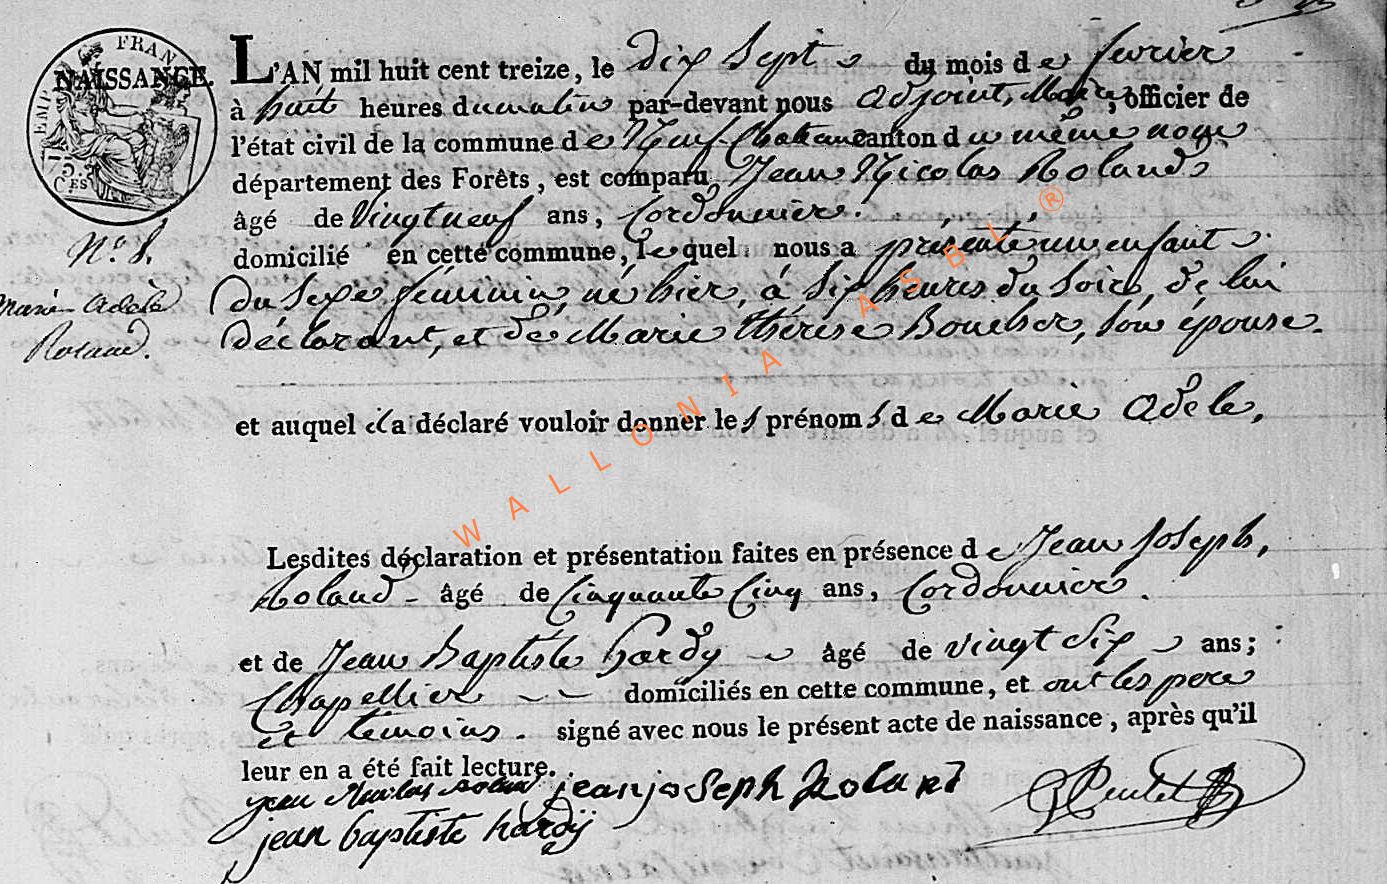 NAISSANCE.
L'AN mil huit cent treize, le dix sept du mois de fevrier
à huit heures du matin par-devant nous adjoint Maire, officier de
l'état civil de la commune de Neuf-Chateau canton du même nom
département des Forêts, est comparu Jean Nicolas Roland
âgé de vingt neuf ans, Cordonnier.
domicilié en cette commune, lequel nous a présenté un enfant
du sexe féminin, né hier, à six heures du soir, de lui
déclarant, et de Marie thérèse Boucher, son épouse.
N.º 8.
Marie adele
Roland.
et auquel il a déclaré vouloir donner les prénoms de Marie adele,
Lesdites déclaration et présentation faites en présence de Jean Joseph,
Roland - âgé de Cinquante Cinq ans, Cordonnier.
et de Jean Baptiste hardy âgé de vingt six ans;
Chapellier domiciliés en cette commune, et ont les pere
et temoins. signé avec nous le présent acte de naissance, après qu'il
leur en a été fait lecture.
jean Nicolas roland jean joseph Roland
jean baptiste hardij
WALLONIA ASBL ®